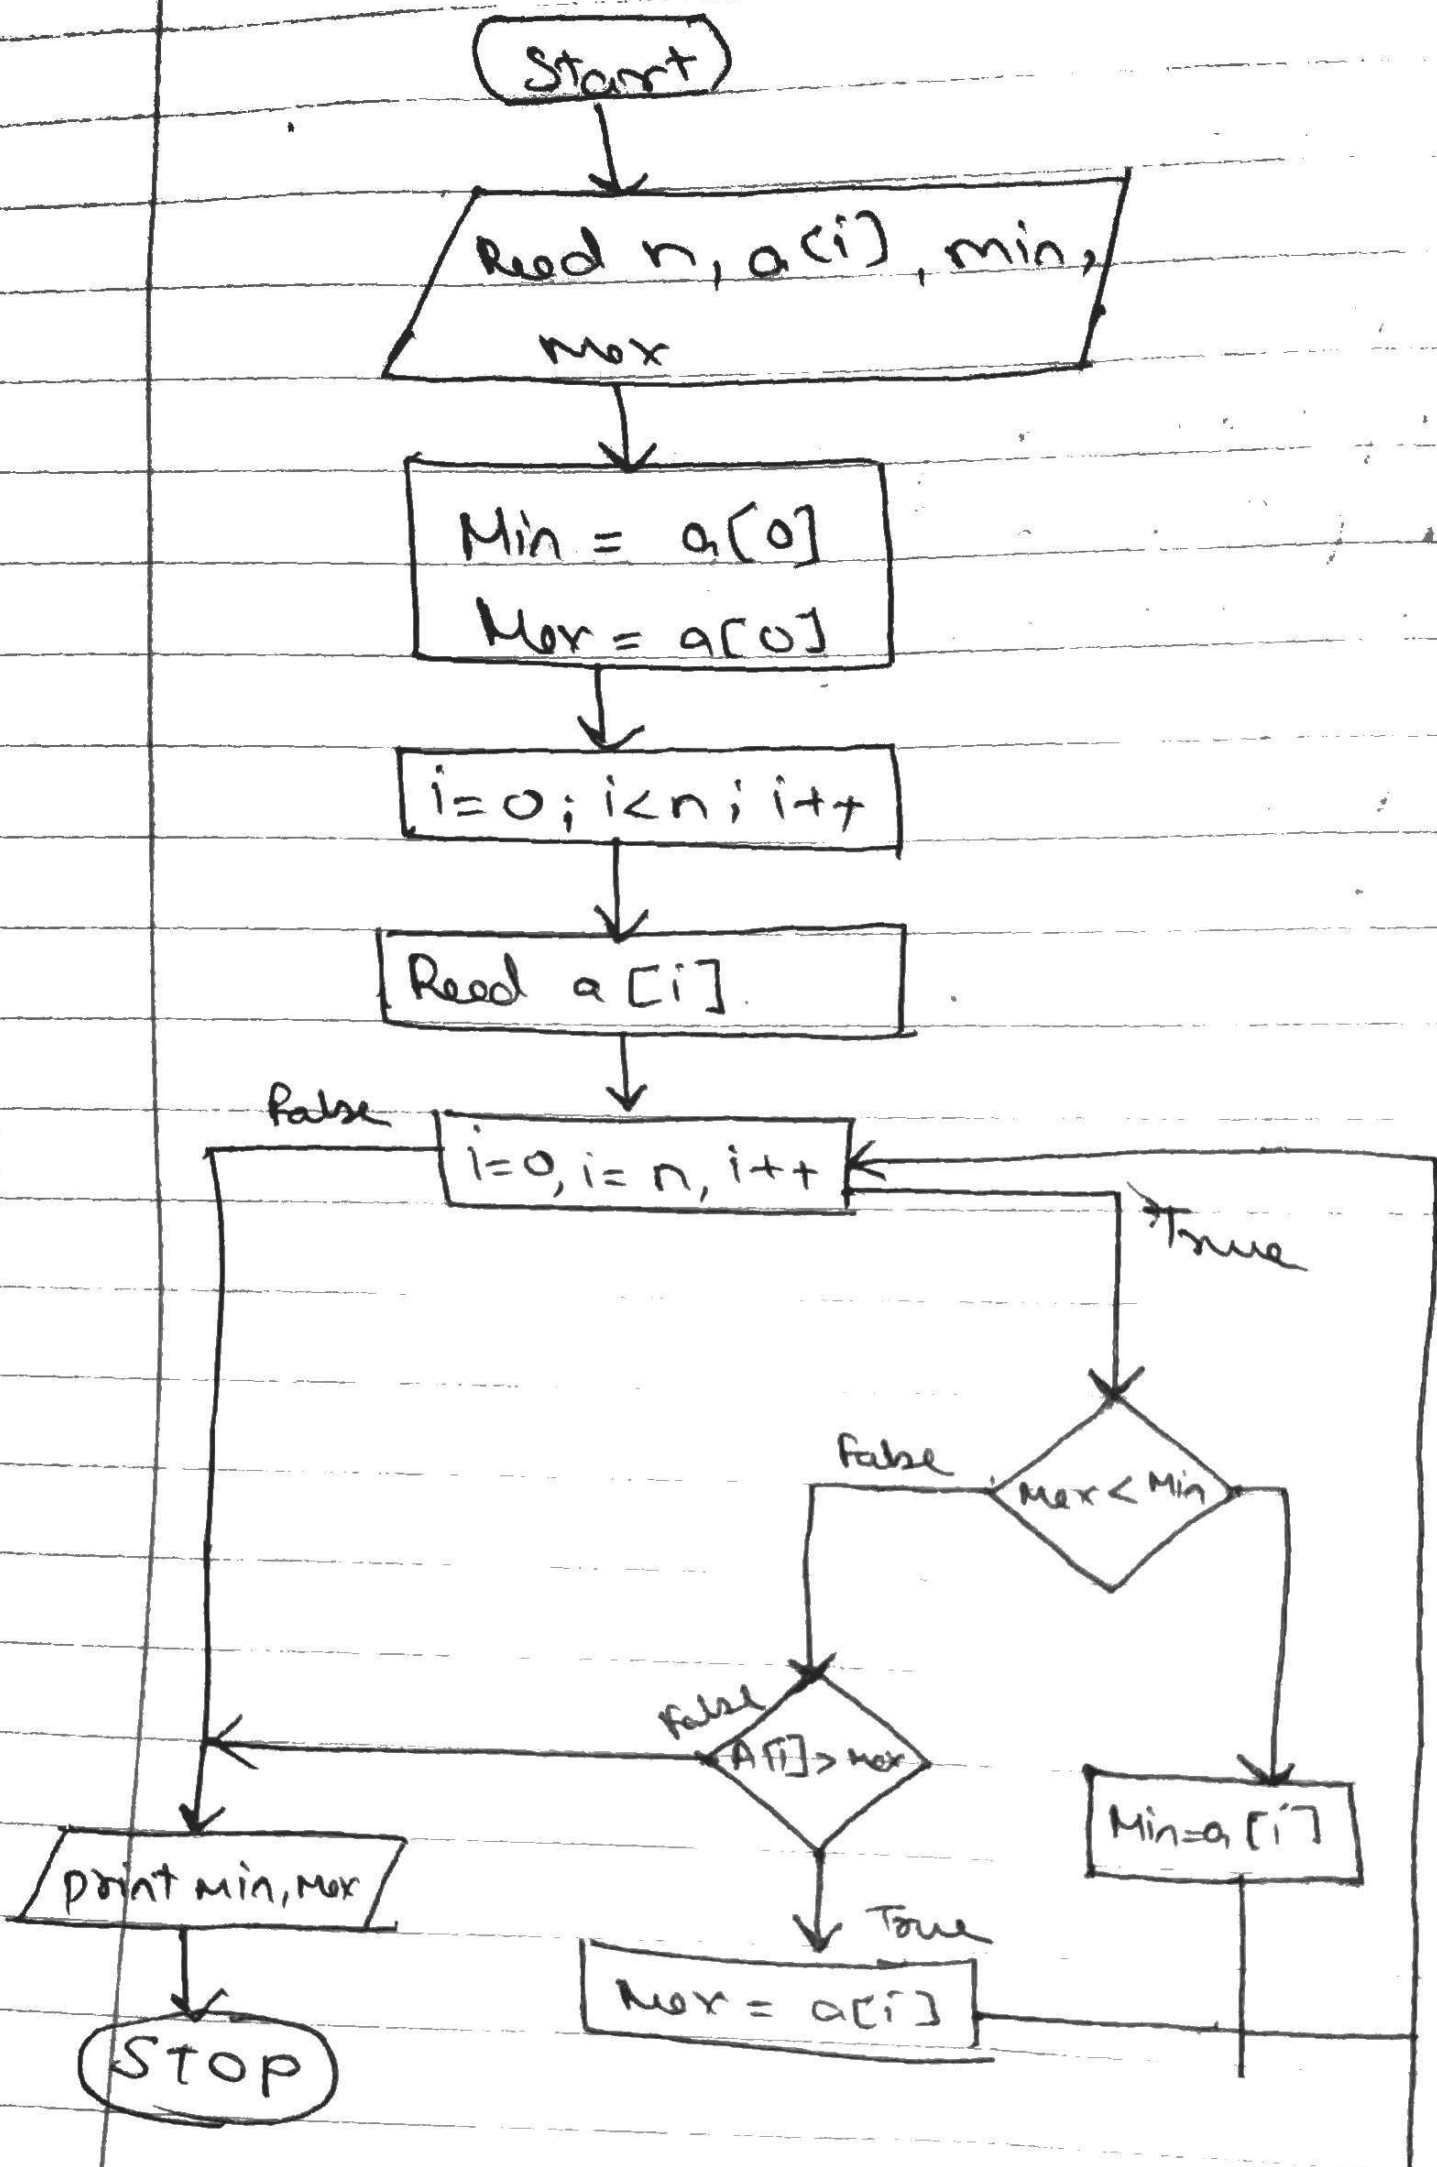 Start
Read n, a[i], min,
max
Min = a[0]
Max = a[0]
i=0; i<n; i++
Read a[i]
False
i=0, i=n, i++
True
False
Max < Min
False
A[i]>Max
Min=a[i]
print Min, Max
True
Max = a[i]
STOP